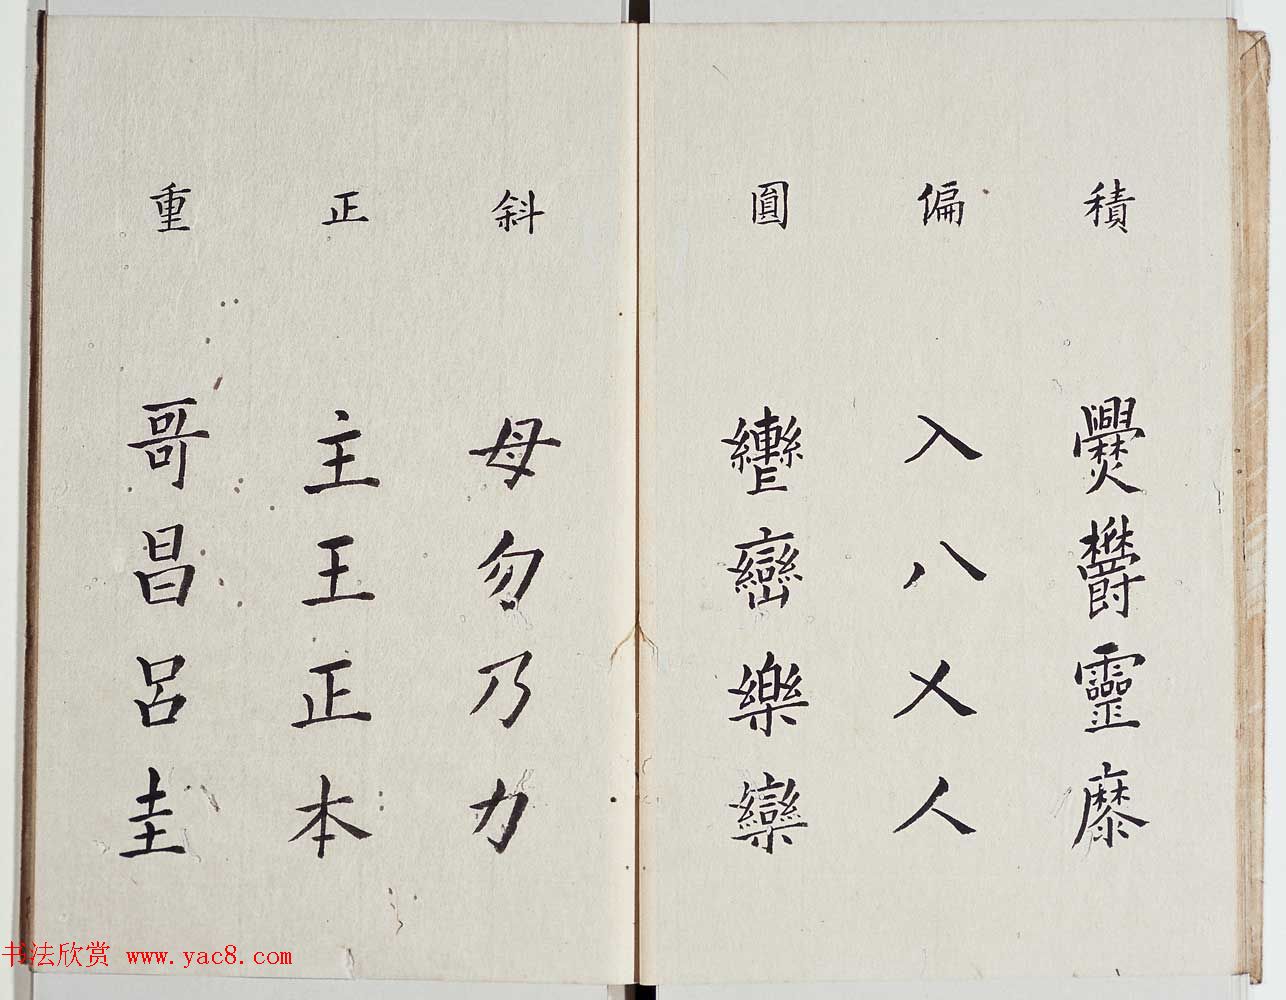 積 爨鬱靈糜
偏 入八乂人
圓 轡巒樂欒
斜 母勿乃力
正 主王正本
重 哥昌呂圭
书法欣赏 www.yac8.com